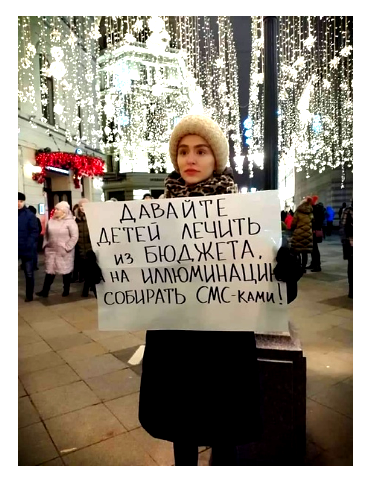 ДАВАЙТЕ
ДЕТЕЙ ЛЕЧИТЬ
ИЗ БЮДЖЕТА,
НА ИЛЛЮМИНАЦИЮ
СОБИРАТЬ СМС-ками!